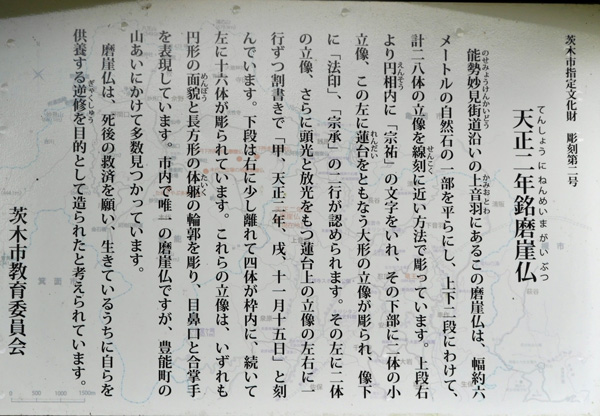 茨木市指定文化財　彫刻第二号
天正二年銘磨崖仏
てんしょうにねんめいまがいぶつ
能勢妙見街道沿いの上音羽にあるこの磨崖仏は、幅約六
のせみょうけんかいどう
かみおとわ
メートルの自然石の一部を平らにし、上下二段にわけて、
計二八体の立像を線刻に近い方法で彫っています。上段右
せんこく
より円相内に「宗祐」の文字をいれ、その下部に二体の小
えんそう
立像、この左に蓮台をともなう大形の立像が彫られ、像下
れんだい
に「法印」、「宗承」の二行が認められます。その左に二体
の立像、さらに頭光と放光をもつ蓮台上の立像の左右に一
行ずつ割書きで「甲、天正二年、戌、十一月十五日」と刻
んでいます。下段は右に少し離れて四体が枠内に、続いて
左に十六体が彫られています。これらの立像は、いずれも
円形の面貌と長方形の体躯の輪郭を彫り、目鼻口と合掌手
めんぼう
たいく
を表現しています。市内で唯一の磨崖仏ですが、豊能町の
山あいにかけて多数見つかっています。
磨崖仏は、死後の救済を願い、生きているうちに自らを
供養する逆修を目的として造られたと考えられています。
ぎゃくしゅう
茨木市教育委員会
0 500 1000 1500m